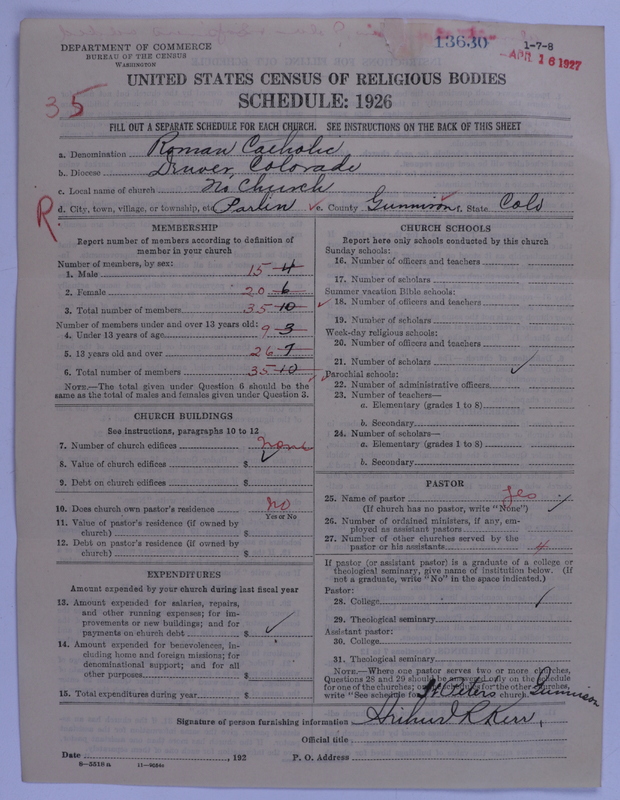 13630
1-7-8
APR 16 1927
DEPARTMENT OF COMMERCE
BUREAU OF THE CENSUS
WASHINGTON
UNITED STATES CENSUS OF RELIGIOUS BODIES
SCHEDULE: 1926
35
FILL OUT A SEPARATE SCHEDULE FOR EACH CHURCH. SEE INSTRUCTIONS ON THE BACK OF THIS SHEET
a. Denomination Roman Catholic
b. Diocese Denver, Colorado
c. Local name of church No Church
R. d. City, town, village, or township, etc Parlin e. County Gunnison f. State Colo
MEMBERSHIP
Report number of members according to definition of
member in your church
Number of members, by sex:
1. Male 15 4
2. Female 20 6
3. Total number of members 35 10
Number of members under and over 13 years old:
4. Under 13 years of age 9 3
5. 13 years old and over 26 7
6. Total number of members 35 10
NOTE.—The total given under Question 6 should be the
same as the total of males and females given under Question 3.
CHURCH BUILDINGS
See instructions, paragraphs 10 to 12
7. Number of church edifices none
8. Value of church edifices $
9. Debt on church edifices $
10. Does church own pastor's residence No
Yes or No
11. Value of pastor's residence (if owned by
church) $
12. Debt on pastor's residence (if owned by
church) $
EXPENDITURES
Amount expended by your church during last fiscal year
13. Amount expended for salaries, repairs,
and other running expenses; for im-
provements or new buildings; and for
payments on church debt $
14. Amount expended for benevolences, in-
cluding home and foreign missions; for
denominational support; and for all
other purposes $
15. Total expenditures during year $
CHURCH SCHOOLS
Report here only schools conducted by this church
Sunday schools:
16. Number of officers and teachers
17. Number of scholars
Summer vacation Bible schools:
18. Number of officers and teachers
19. Number of scholars
Week-day religious schools:
20. Number of officers and teachers
21. Number of scholars
Parochial schools:
22. Number of administrative officers
23. Number of teachers—
a. Elementary (grades 1 to 8)
b. Secondary
24. Number of scholars—
a. Elementary (grades 1 to 8)
b. Secondary
PASTOR
25. Name of pastor yes
(If church has no pastor, write "None")
26. Number of ordained ministers, if any, em-
ployed as assistant pastors
27. Number of other churches served by the
pastor or his assistants 4
If pastor (or assistant pastor) is a graduate of a college or
theological seminary, give name of institution below. (If
not a graduate, write "No" in the space indicated.)
Pastor:
28. College
29. Theological seminary
Assistant pastor:
30. College
31. Theological seminary
NOTE.—Where one pastor serves two or more churches,
Questions 28 and 29 should be answered only on the schedule
for one of the churches; on schedules for the other churches,
write "See schedule for St Peters church. Gunnison
Signature of person furnishing information Arthur R Kerr,
Official title
Date , 192 P. O. Address
8—5518a 11—